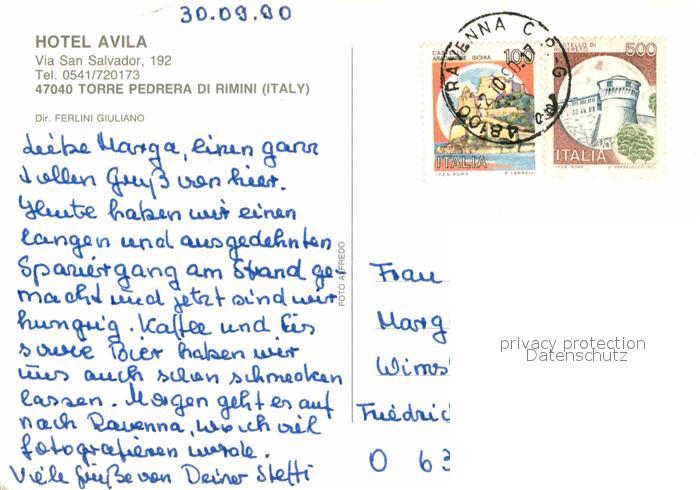 30.09.90
HOTEL AVILA
Via San Salvador, 192
Tel. 0541/720173
47040 TORRE PEDRERA DI RIMINI (ITALY)
Dir. FERLINI GIULIANO
Liebe Marga, einen ganz
tollen Gruß von hier.
Heute haben wir einen
langen und ausgedehnten
Spaziergang am Strand ge-
macht und jetzt sind wir
hungrig. Kaffee und Eis
sowie Bier haben wir
uns auch schon schmecken
lassen. Morgen geht es auf
nach Ravenna, wo ich viel
fotografieren werde.
Viele Grüße von Deiner Steffi
FOTO ALFREDO
48100 RAVENNA C.P.
2.10.90
CASTELLO
ARAGONESE - ISCHIA
100
ITALIA
I.P.Z.S. - ROMA
CASTELLO DI
ROVERETO
500
ITALIA
I.P.Z.S. ROMA
Frau
Marg
Wims
Friedric
O 63
privacy protection
Datenschutz